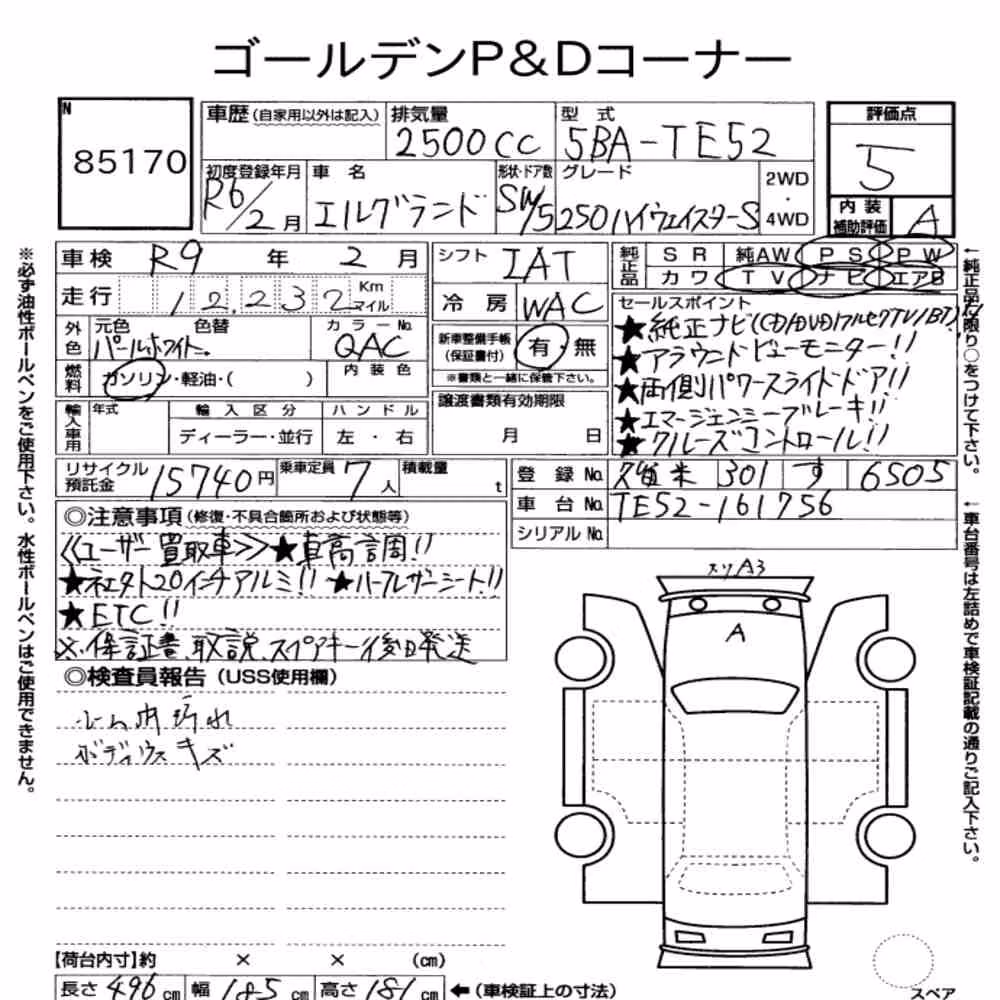 ゴールデンP&Dコーナー
N
85170
車歴 (自家用以外は記入)
排気量
2500CC
型 式
5BA-TE52
評価点
5
初度登録年月
R6/2月
車 名
エルグランド
形状・ドア数
SW/5
グレード
250ハイウェイスターS
2WD
・
4WD
内 装
補助評価
A
車検 R9 年 2 月
走行 12,232 Km マイル
外色
元色 色替
パールホワイト
カラーNo.
QAC
燃料
ガソリン・軽油・( )
内 装 色
輸入車用
年式
輸 入 区 分
ハ ン ド ル
ディーラー・並行
左 ・ 右
シフト IAT
冷 房 WAC
新車整備手帳
(保証書付)
有・無
※書類と一緒に保管下さい。
譲渡書類有効期限
月 日
純正品
S R 純AW P S P W
カ ワ T V ナ ビ エアB
セールスポイント
★純正ナビ(CD/DVD/フルセグTV/BT)!!
★アラウンドビューモニター!!
★両側パワースライドドア!!
★エマージェンシーブレーキ!!
★クルーズコントロール!!
リサイクル
預託金
15740円
乗車定員 7 人
積載量 t
登 録 No. 久留米 301 す 6505
車 台 No. TE52-161756
シリアル No.
◎注意事項 (修復・不具合箇所および状態等)
≪ユーザー買取車≫★車高調!!
★社外20インチアルミ!!★ハーフレザーシート!!
★ETC!!
※保証書、取説、スペアキー後日発送
◎検査員報告 (USS使用欄)
ボディウスキズ
スリA3
A
【荷台内寸】約 × × (cm)
長さ 496 cm 幅 185 cm 高さ 181 cm ←(車検証上の寸法)
スペア
※必ず油性ボールペンをご使用下さい。水性ボールペンはご使用できません。
←純正品に限り○をつけて下さい。
←車台番号は左詰めで車検証記載の通りご記入下さい。